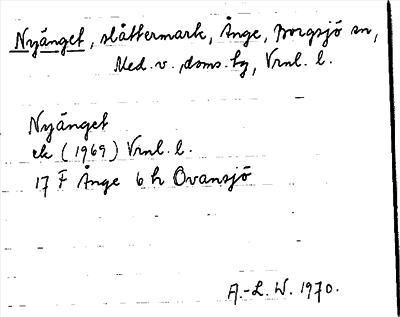 Nyänget, slåttermark, Ånge, Borgsjö sn,
Med. v. doms. tg, Vrnl. l.
Nyänget
ek (1969) Vrnl. l.
17 F Ånge 6 h Ovansjö
A.-L. W. 1970.